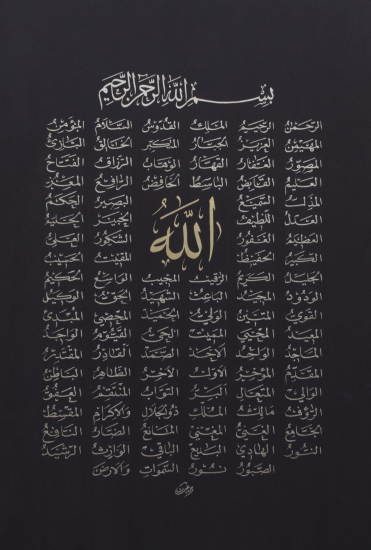 بسم الله الرحمن الرحيم
الرحمن الرحيم الملك القدوس السلام المؤمن
المهيمن العزيز الجبار المتكبر الخالق البارئ
المصور الغفار القهار الوهاب الرزاق الفتاح
العليم القابض الباسط الخافض الرافع المعز
المذل السميع البصير الحكم
العدل اللطيف الخبير الحليم
العظيم الغفور الشكور العلي
الله
الكبير الحفيظ المقيت الحسيب
الجليل الكريم الرقيب المجيب الواسع الحكيم
الودود المجيد الباعث الشهيد الحق الوكيل
القوي المتين الولي الحميد المحصي المبدئ
المعيد المحيي المميت الحي القيوم الواجد
الماجد الواحد الأحد الصمد القادر المقتدر
المقدم المؤخر الأول الآخر الظاهر الباطن
الوالي المتعال البر التواب المنتقم العفو
الرؤوف مالك الملك ذو الجلال والإكرام المقسط
الجامع الغني المغني المانع الضار النافع
النور الهادي البديع الباقي الوارث الرشيد
الصبور نور السموات والأرض